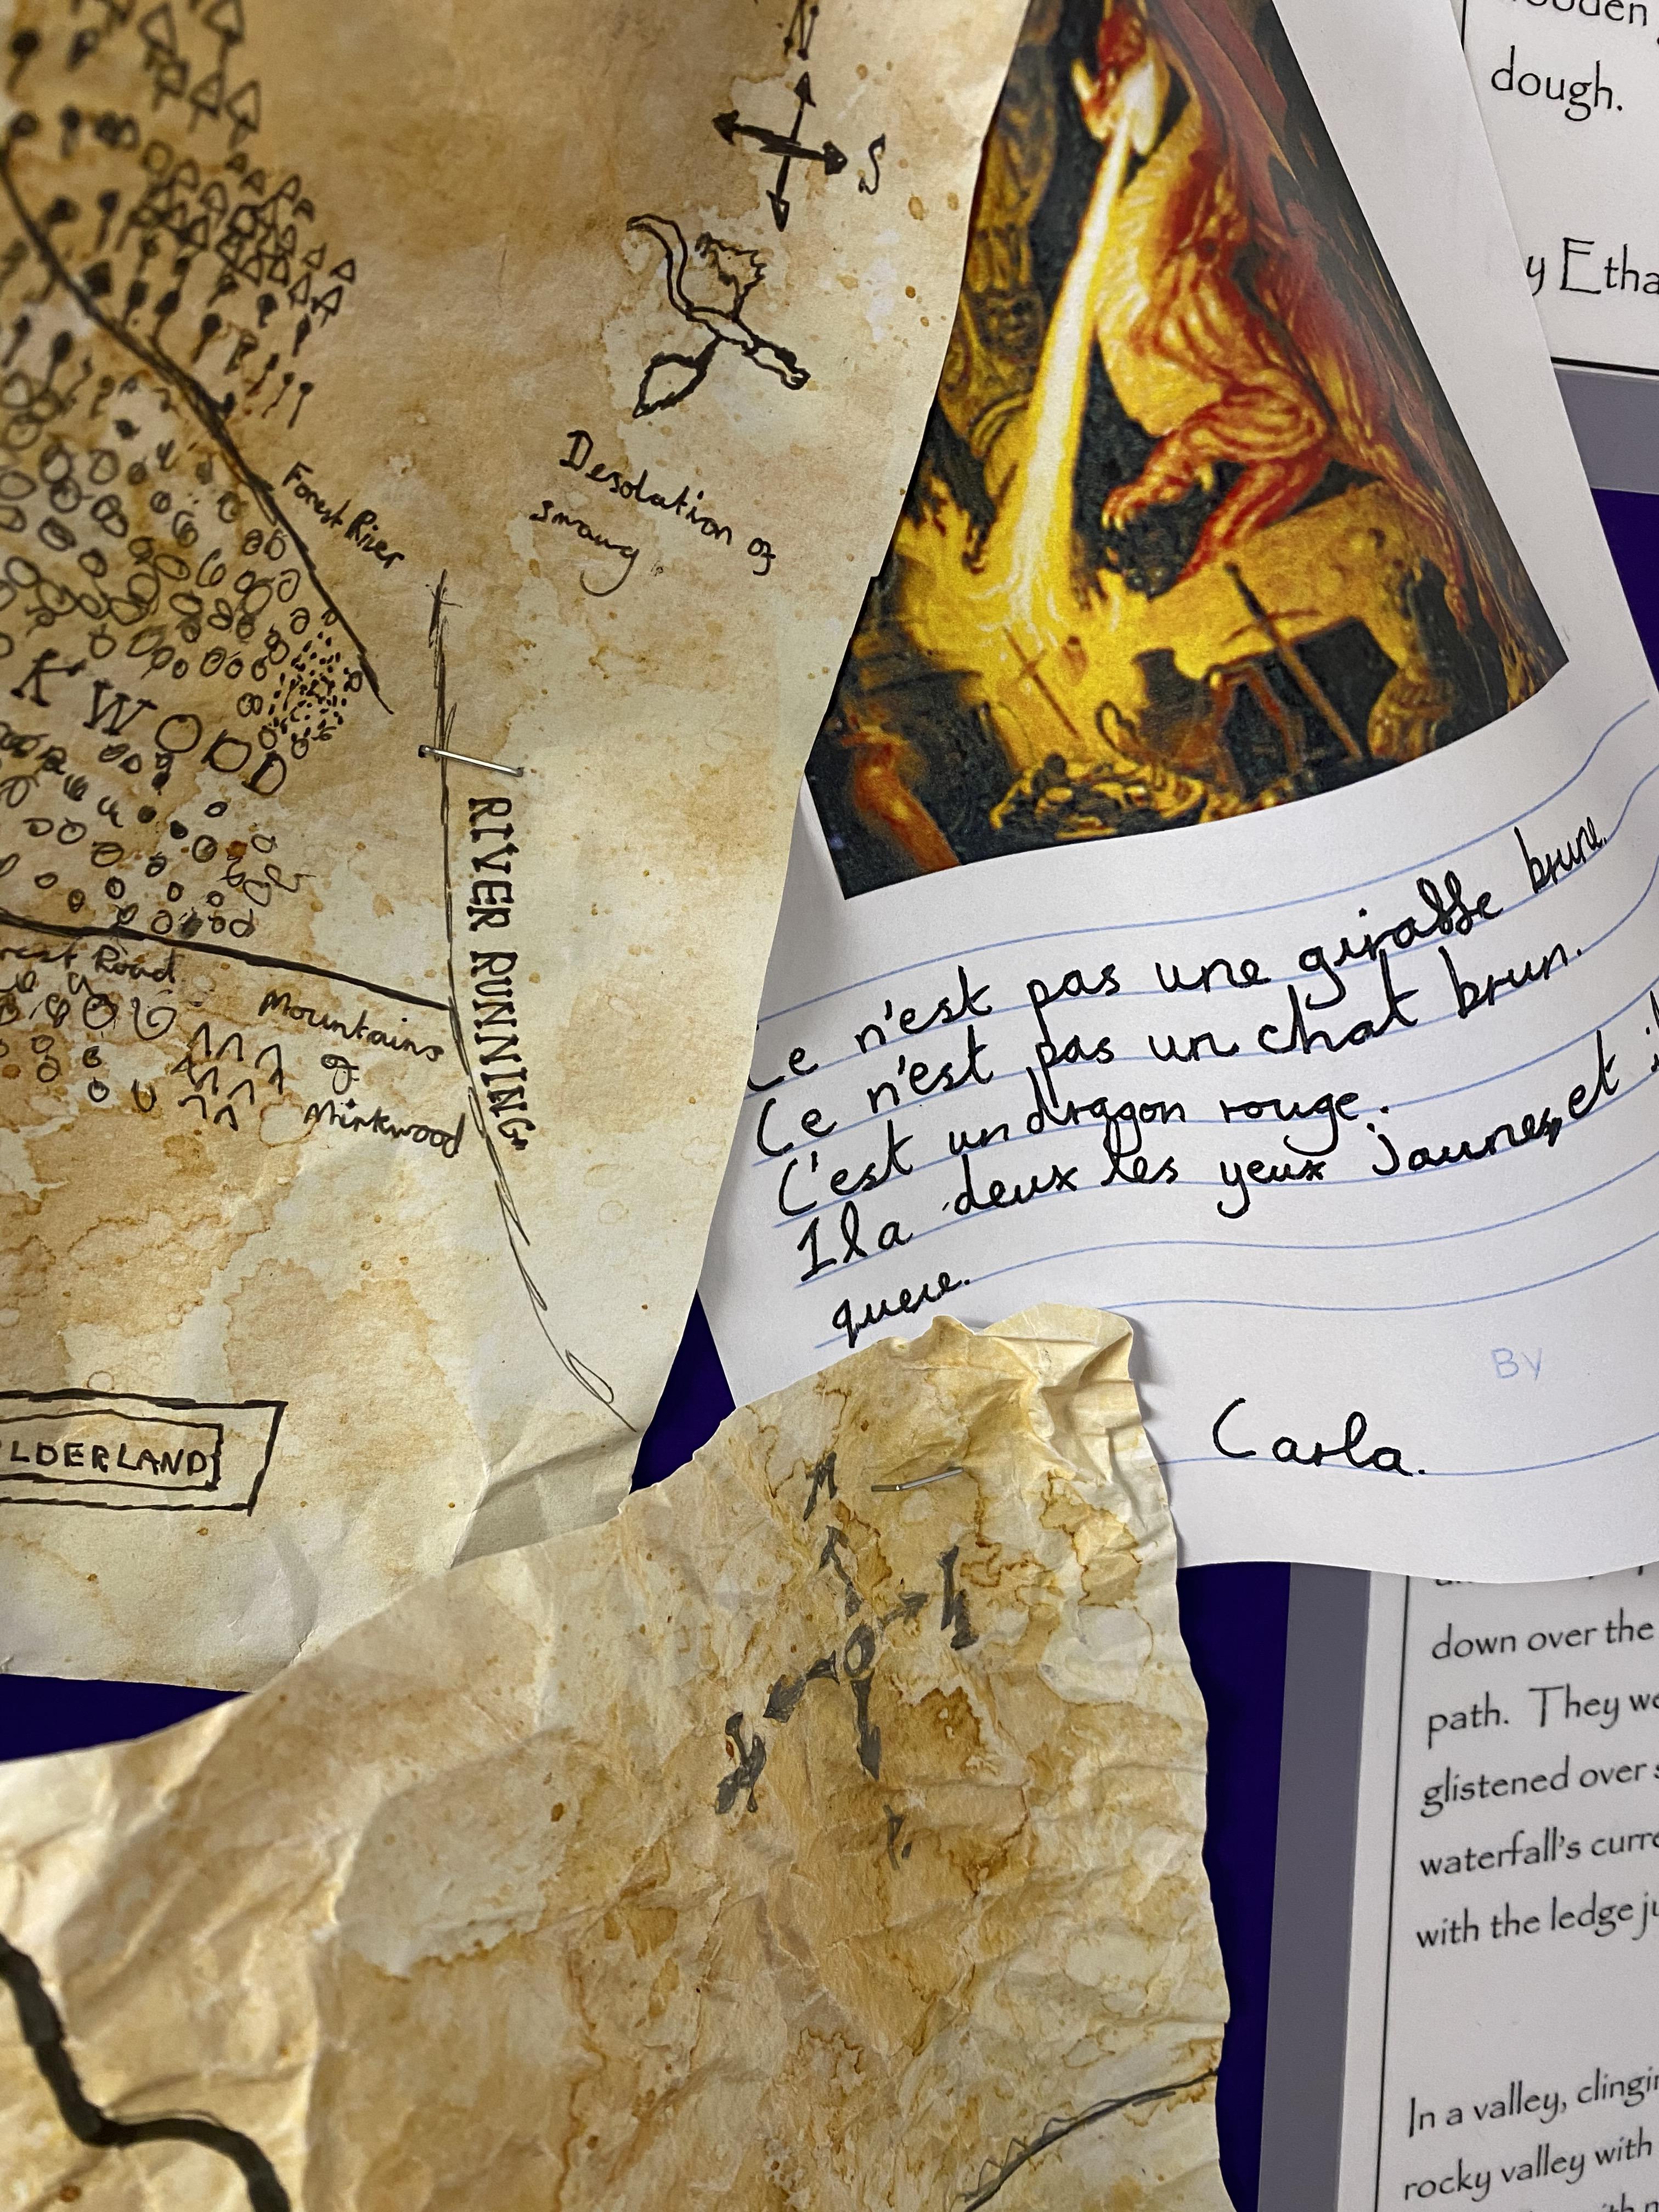 N
S
Desolation of
smaug
Forest River
KWOOD
RIVER RUNNING
Road
Mountains
of
Mirkwood
LDERLAND
dough.
y Etha
Ce n'est pas une giraffe brune.
Ce n'est pas un chat brun.
C'est un dragon rouge.
Il a deux les yeux jaunes, et
queue.
By
Carla.
N
down over the
path. They we
glistened over s
waterfall's curre
with the ledge ju
In a valley, clingin
rocky valley with